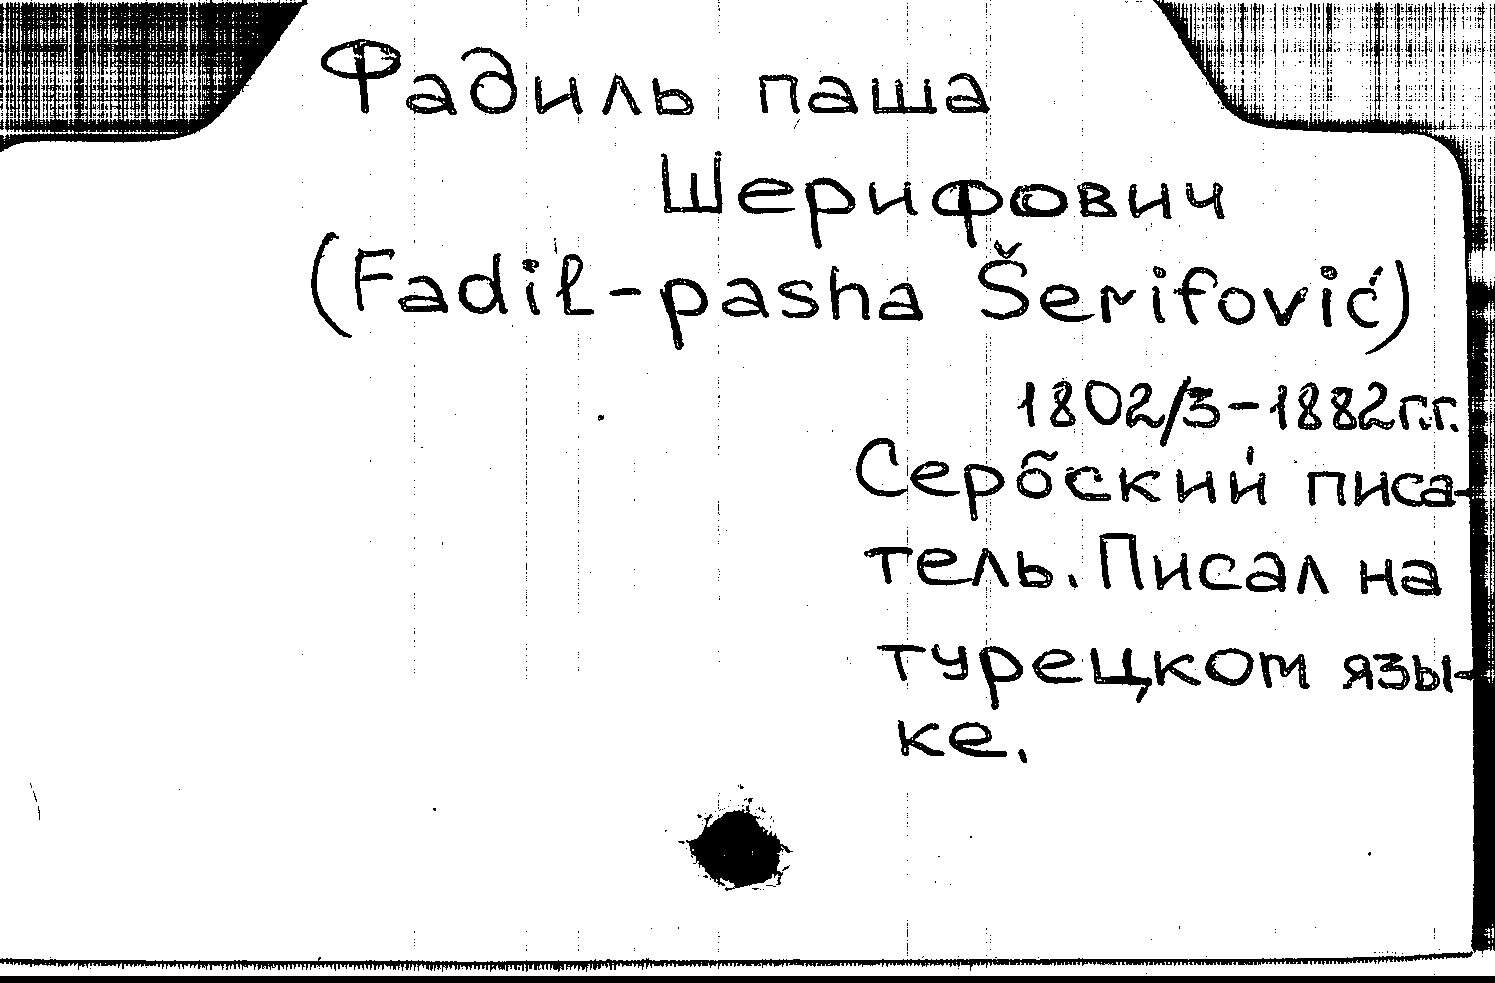 Фадиль паша
Шерифович
(Fadil-pasha Šerifović)
1802/3-1882г.г.
Сербский писа-
тель. Писал на
турецком язы-
ке.